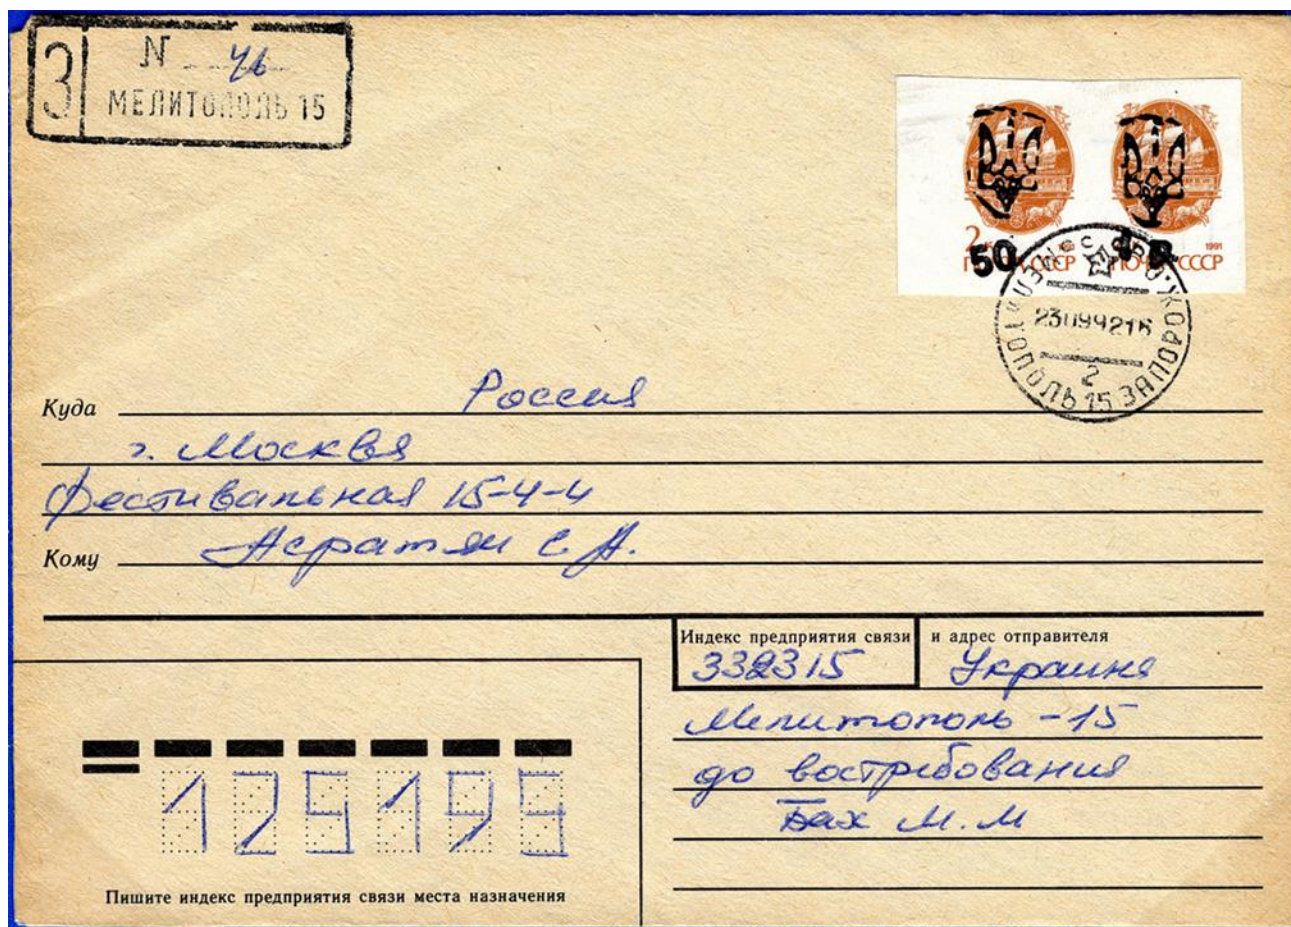 З
N 46
МЕЛИТОПОЛЬ 15
2 к
1991
50
ПОЧТА СССР
ПОЧТА СССР
23 09 92 16
2
ТОПОЛЬ 15 ЗАПОРО
Куда Россия
г. Москва
Фестивальная 15-4-4
Кому Асратян С. А.
Индекс предприятия связи и адрес отправителя
332315 Украина
Мелитополь - 15
до востребования
Бах М.М
125195
Пишите индекс предприятия связи места назначения